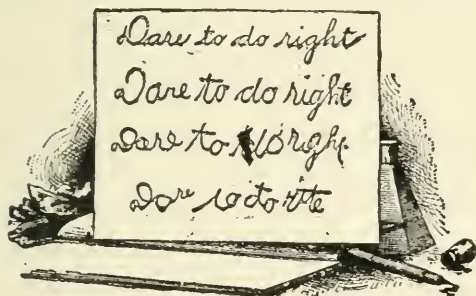 Dare to do right
Dare to do right
Dare to do righ
Dare to do rite